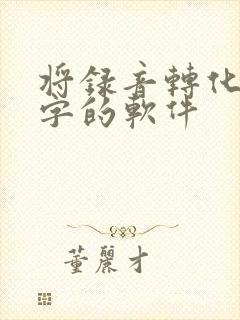 將錄音轉化
字的軟件
董麗才